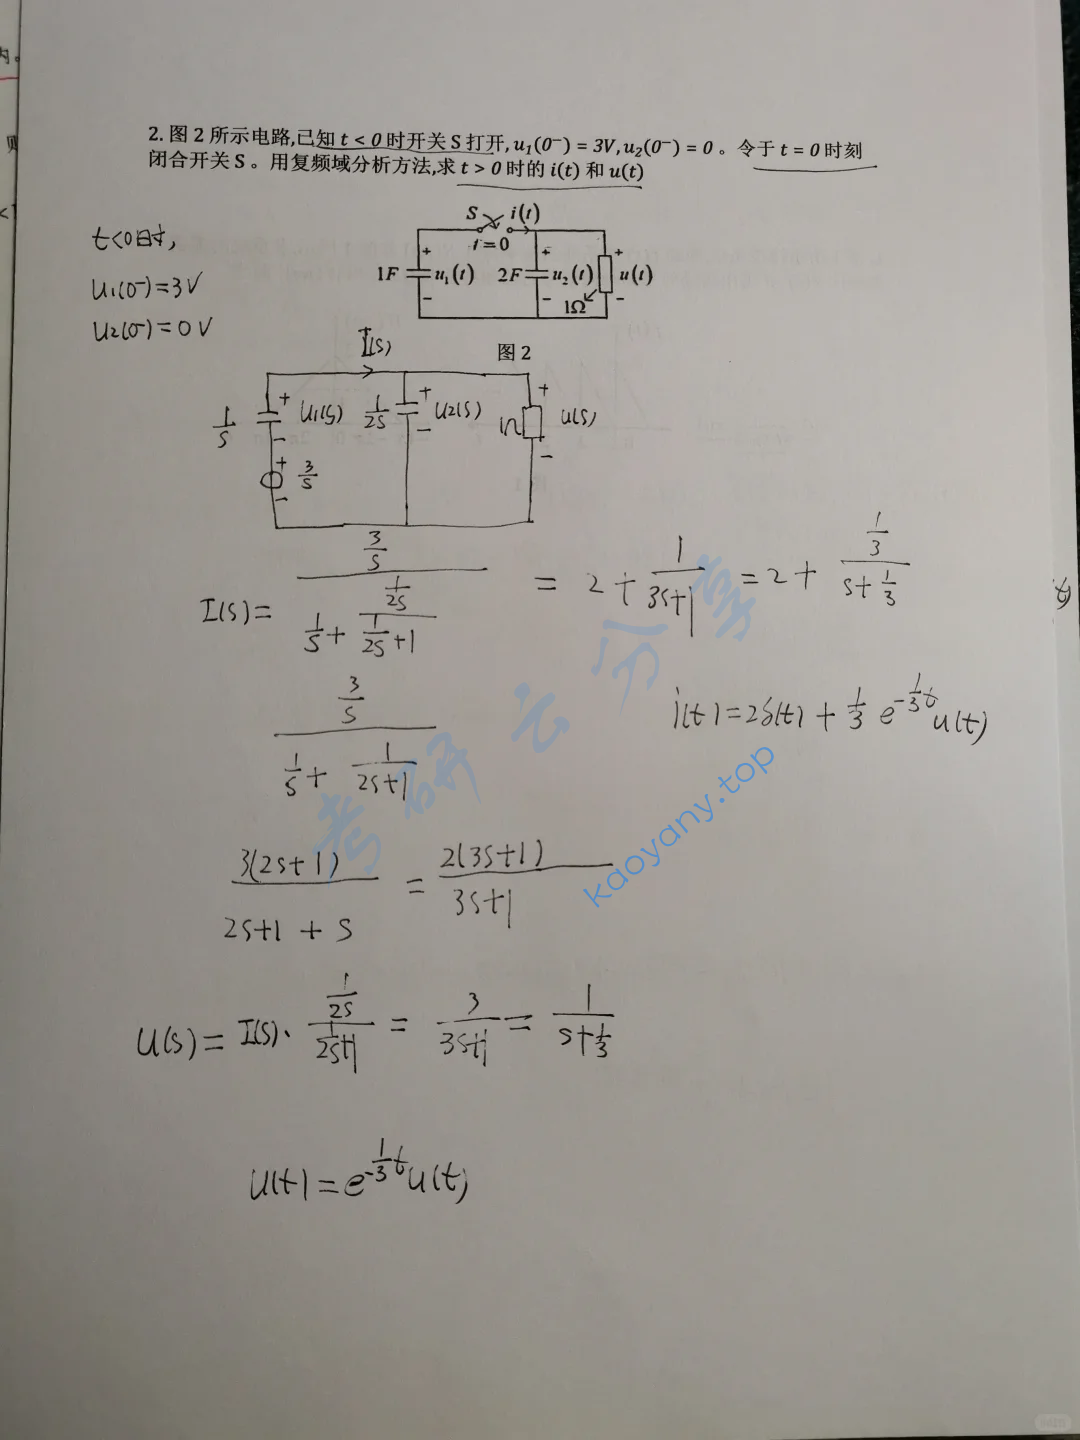 2. 图 2 所示电路,已知 t < 0 时开关 S 打开, u₁(0⁻) = 3V, u₂(0⁻) = 0 。令于 t = 0 时刻
闭合开关 S 。用复频域分析方法,求 t > 0 时的 i(t) 和 u(t)
S i(t)
t=0
1F + u₁(t) − 2F + u₂(t) − 1Ω + u(t) −
图 2
t<0时,
u₁(0⁻)=3V
u₂(0⁻)=0V
I(s)
1/s + U₁(s) − 1/2s + U₂(s) − 1Ω + U(s) −
+ 3/s −
I(s)= (3/s)/(1/s + (1/2s)/(1/2s+1)) = 2 + 1/(3s+1) = 2 + (1/3)/(s+1/3)
(3/s)/(1/s + 1/(2s+1))
i(t)=2δ(t) + 1/3 e^(-1/3 t) u(t)
3(2s+1)/(2s+1+s) = 2(3s+1)/(3s+1)
U(s)= I(s)· (1/2s)/(1/2s+1) = 3/(3s+1) = 1/(s+1/3)
u(t)=e^(-1/3 t) u(t)
考研云分享
kaoyany.top